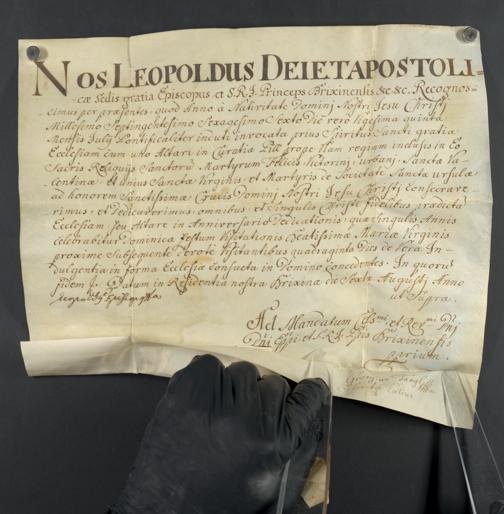 NOS LEOPOLDUS DEI ET APOSTOLI-
cæ Sedis gratia Episcopus et S.R.I. Princeps Brixinensis &c &c. Recognos-
cimus per præsentes, quod Anno à Nativitate Dominj Nostri Jesu Christj
Millesimo Septingentesimo Sexagesimo Sexto Die vero vigesima quinta
Mensis Julij Pontificaliter induti invocata prius Spiritus Sancti gratia
Ecclesiam cum uno Altari in Curatia prope Ilam regiam inclusis in Eo
Sacris Reliquijs Sanctorum Martyrum Felicis, Victorini, Urbanj, Sancta Va-
lentinæ, et unius Sanctæ Virginis, et Martyris de Societate Sanctæ Ursulæ
ad honorem Sanctissimæ Crucis Dominj Nostri Jesu Christj consecrave-
rimus, et Dedicaverimus, omnibus, et Singulis Christi fidelibus prædictam
Ecclesiam, seu Altare in Anniversario Dedicationis, quæ Singulis Annis
celebrabitur Dominica festum Visitationis Beatissimæ Mariæ Virginis
proxime Subsequente Devote Visitantibus quadraginta Dies de Vera In-
dulgentia in forma Ecclesiæ Consueta in Domino Concedentes. In quorum
fidem Datum in Residentia nostra Brixinæ die Sexta Augustj Anno
ut Supra.
Leopoldus Episcopus
Ad Mandatum Cels:mi et Rev:mi D:ni
D:ni Eppi et S.R.I. Pr:pis Brixinensis
prium.